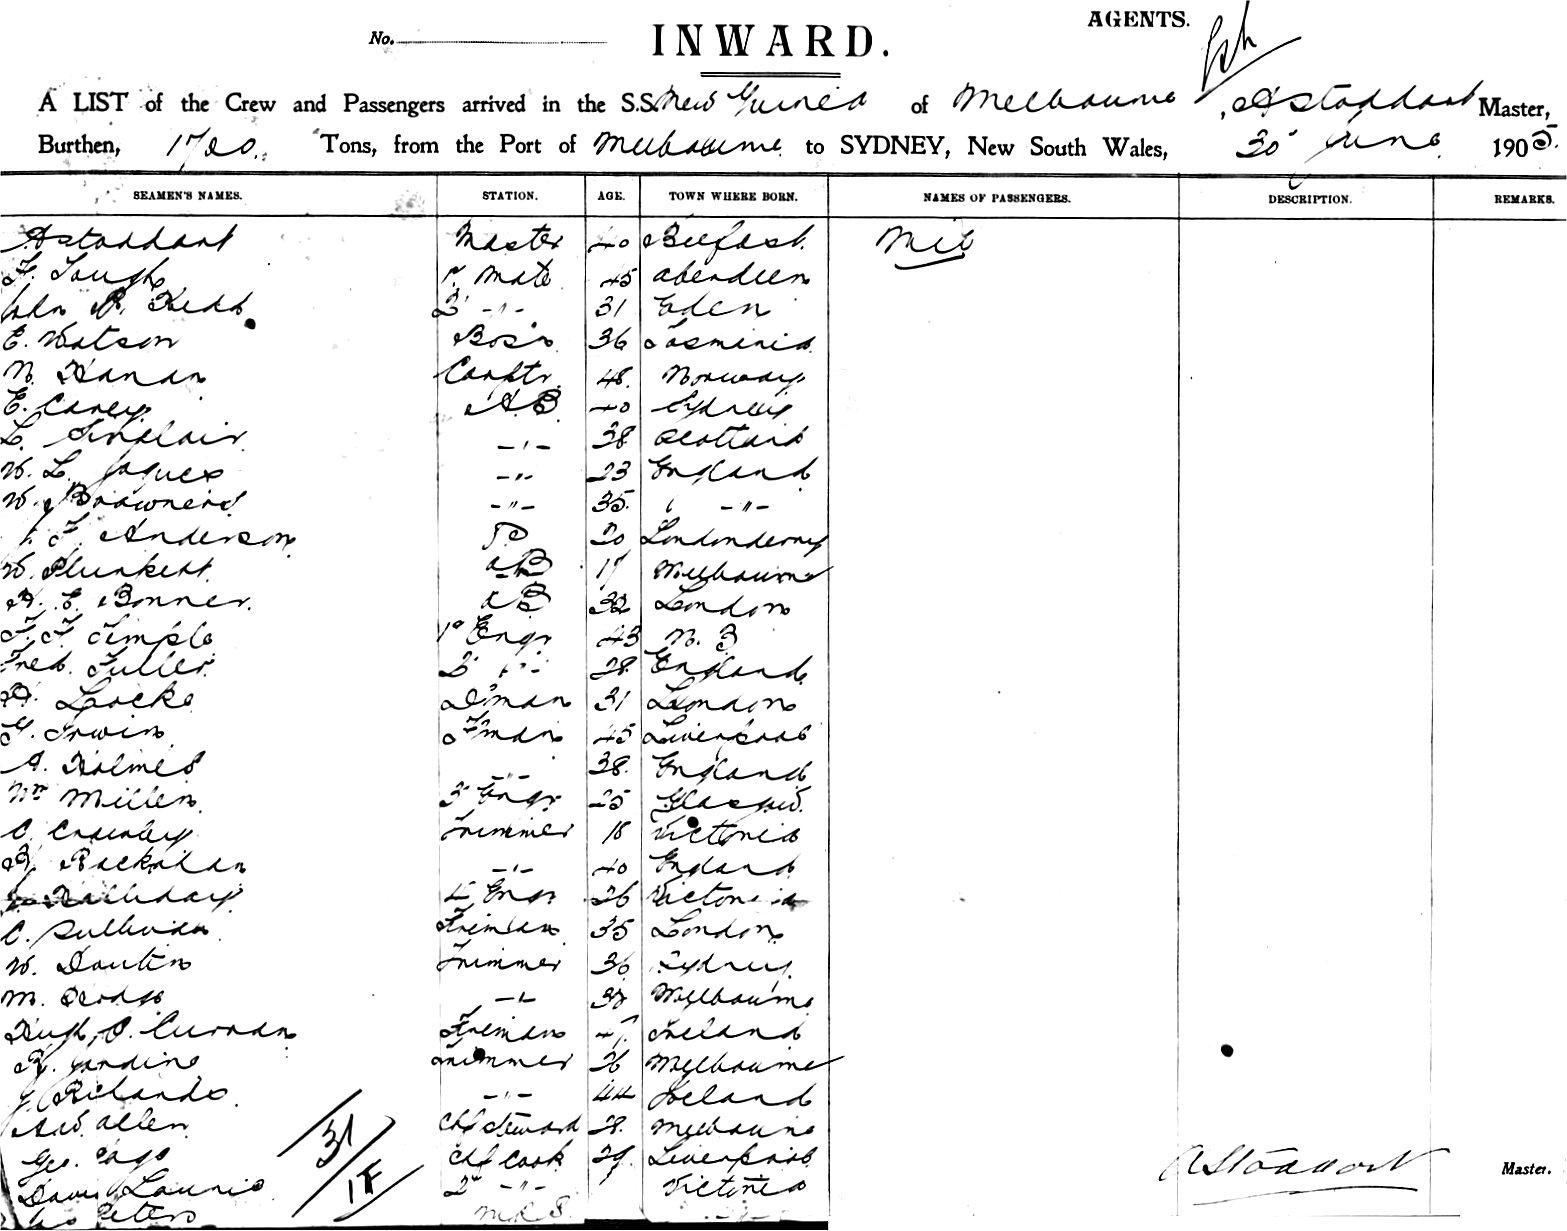 AGENTS.
No.
INWARD.
A LIST of the Crew and Passengers arrived in the S.S. New Guinea of Melbourne, A Stoddart Master,
Burthen, 1720. Tons, from the Port of Melbourne to SYDNEY, New South Wales, 30 June 1905.
SEAMEN'S NAMES. STATION. AGE. TOWN WHERE BORN. NAMES OF PASSENGERS. DESCRIPTION. REMARKS.
A Stoddart Master 40 Belfast. Nil
F. Tough 1 Mate 45 Aberdeen
John R. Kidd 2 -"- 31 Eden
E. Watson Bos'n 36 Tasmania
N. Hanan Carptr. 48. Norway
E. Carey A.B. 40 Sydney
L. Sinclair -"- 38 Scotland
W. L. Jaques -"- 23 England
W. -"- 35. -"-
F. Anderson 20 Londonderry
W. Plunkett AB 17 Melbourne
H. E. Bonner. AB 32 London
F. F. Temple 1st Engr 43 N. Z
Fred. Fuller 2 -"- 28. England
H. Locke Dman 31 London
Irwin Fman 45 Liverpool
A. Holmes -"- 38. England
Wm Miller 3 Engr 25 Glasgow.
C. Trimmer 18 Victoria
-"- 40 England
Halliday 4 Engr 26 Victoria
C. Sullivan Fireman 35 London
W. Trimmer 36 Sydney.
M. -"- Melbourne
Hugh O. Curran Fireman Ireland
R. Jardine Trimmer 26 Melbourne
Richards. -"- 44 Ireland
A.W. Allen Chf Steward 28. Melbourne
Geo. Page Chf Cook 29. Liverpool
31
A Stoddart Master.
David Laurie 2 -"- Victoria
1F
Peters M.R.S. -"-